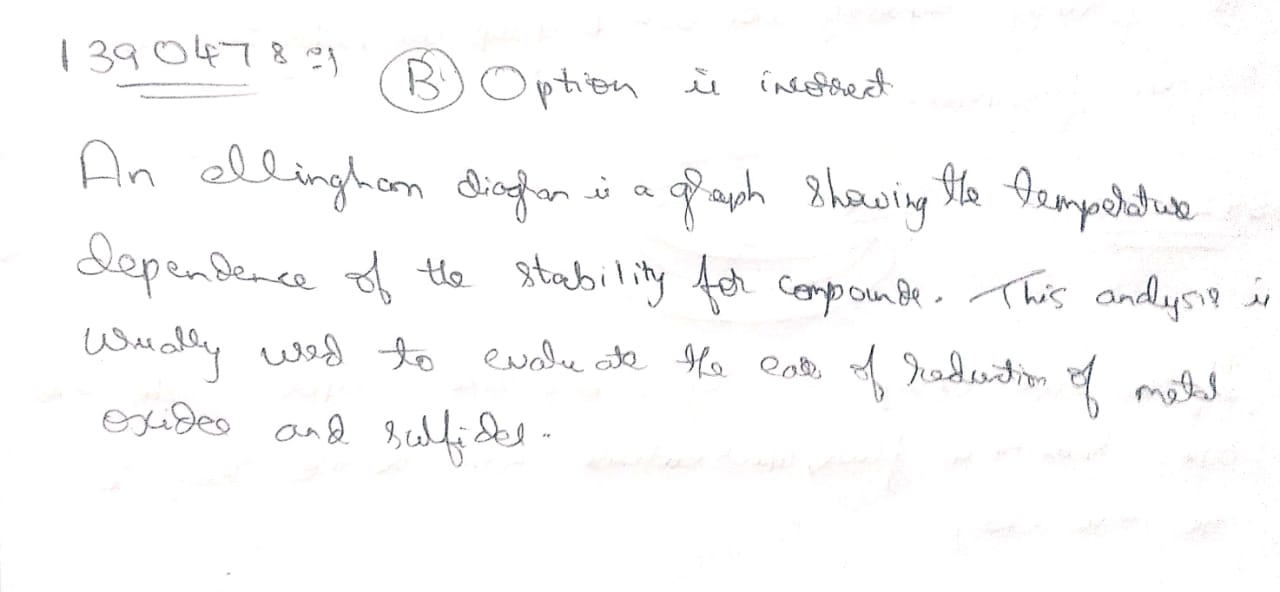 1390478 =>
B Option is incorrect
An ellingham diagram is a graph showing the temperature
dependence of the stability for compounds. This analysis is
usually used to evaluate the ease of reduction of metal
oxides and sulfides.